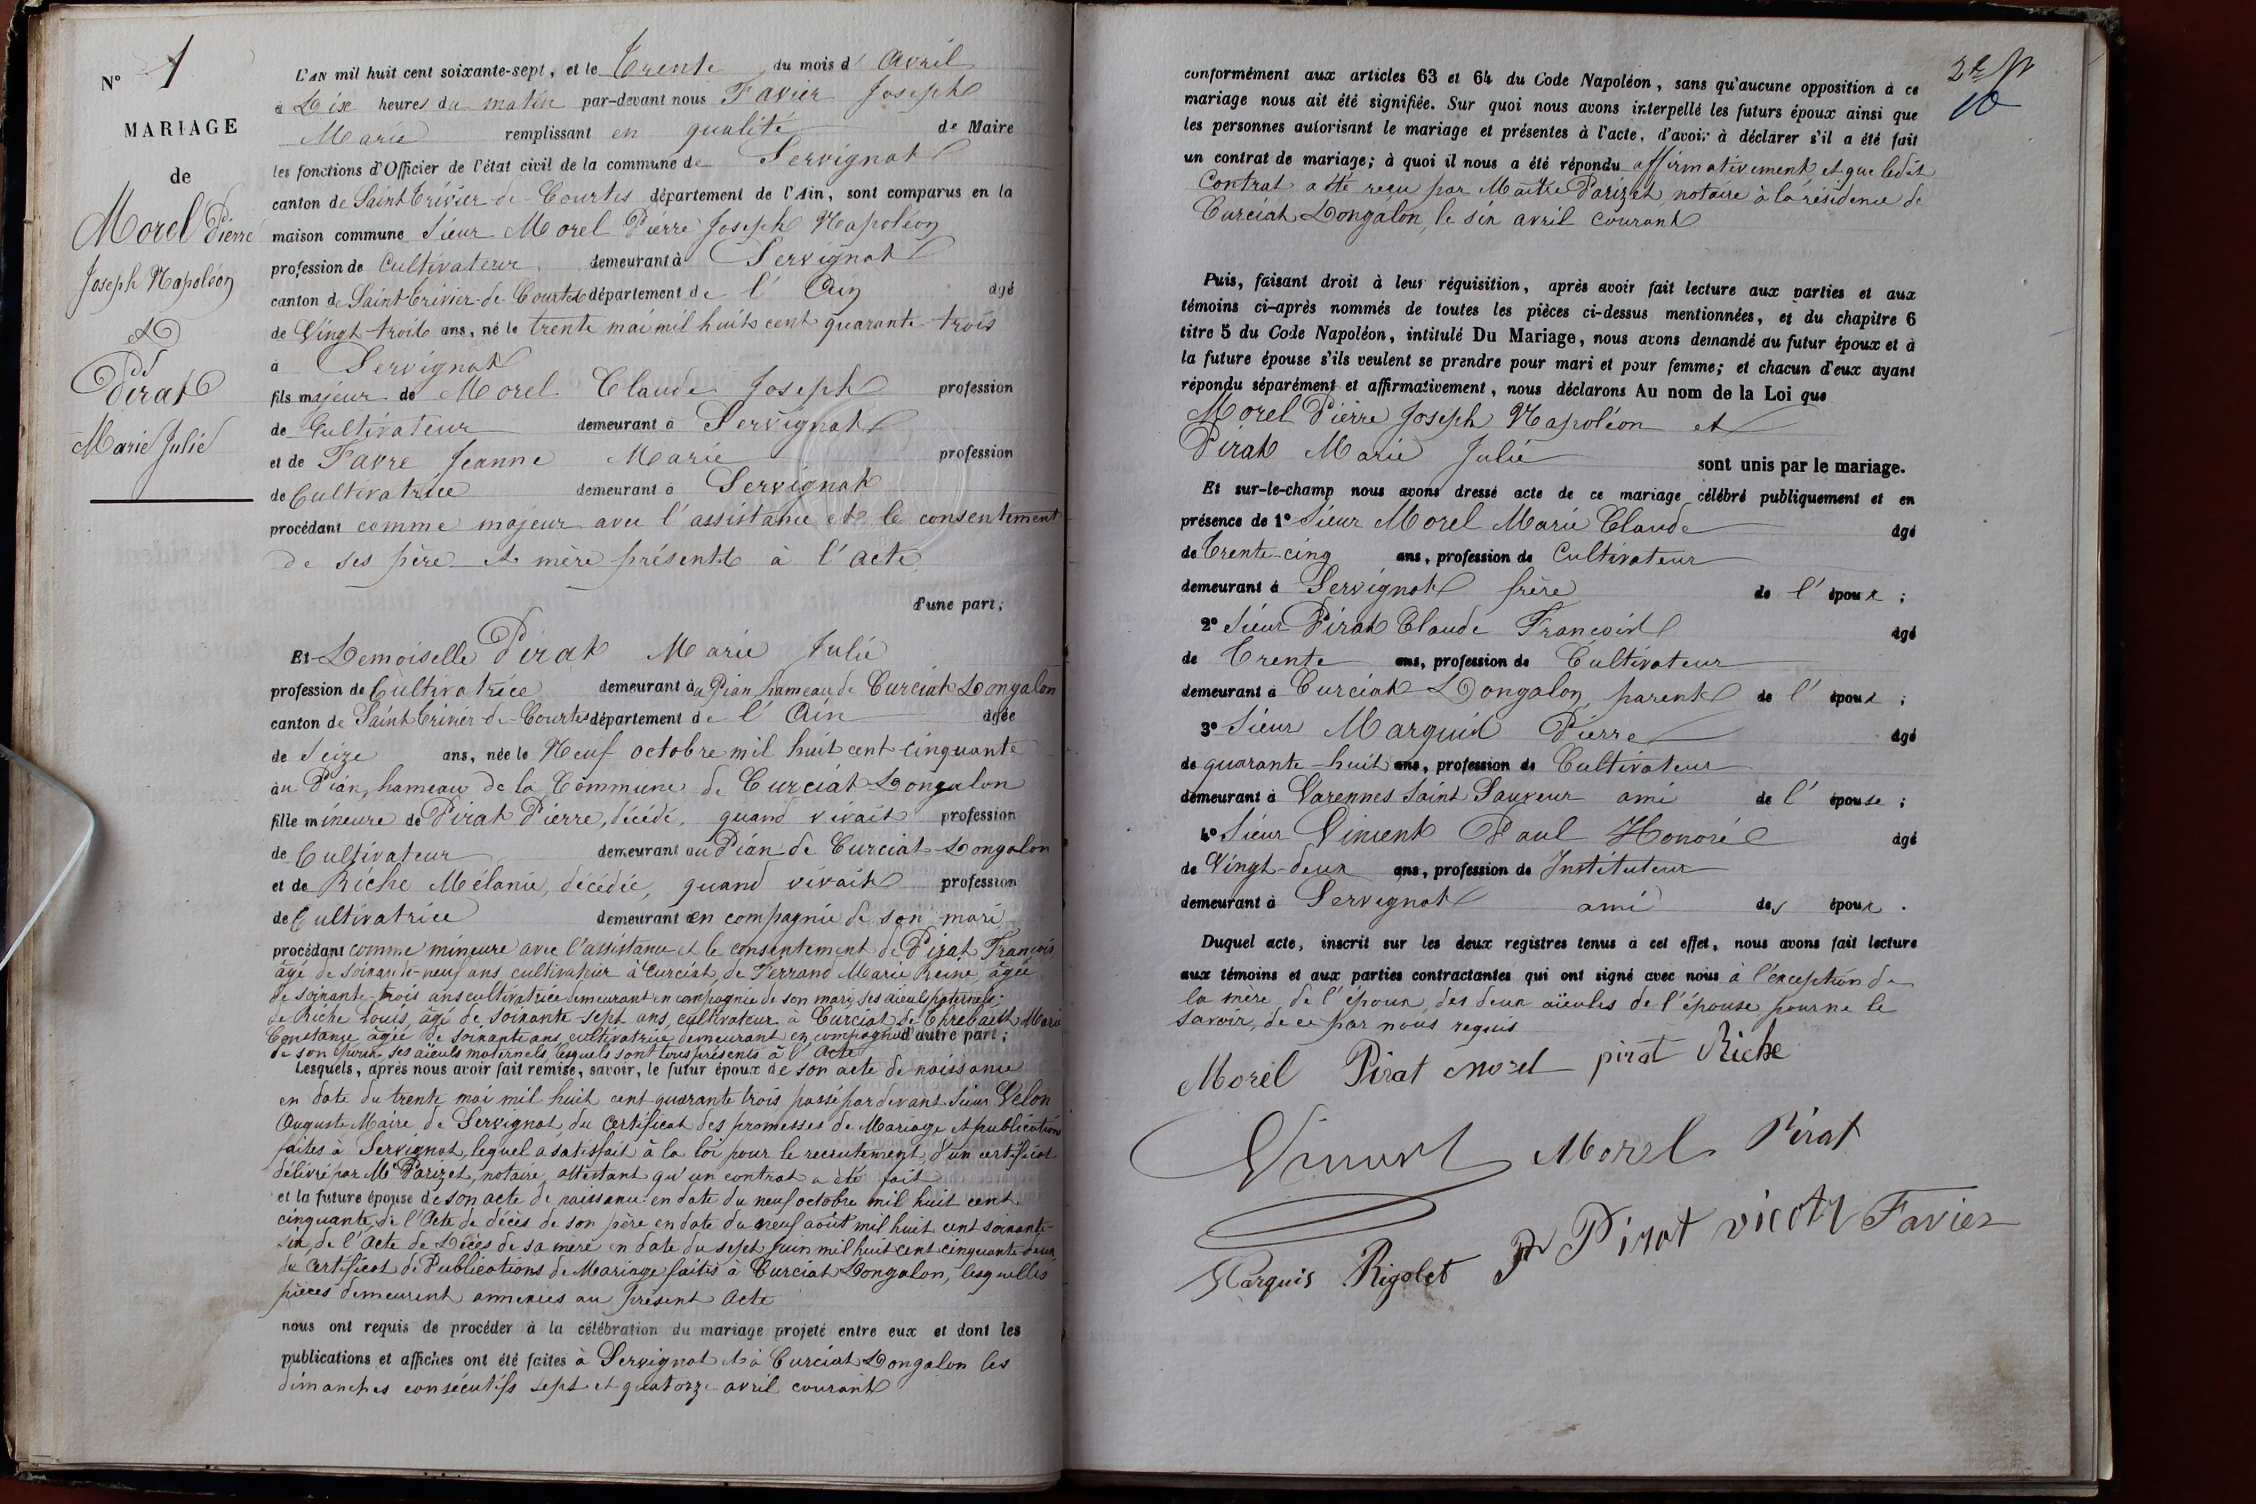 N° 1
MARIAGE
de
Morel Pierre
Joseph Napoléon
et
Pirat
Marie Julie
L'AN mil huit cent soixante-sept, et le Trente du mois d'Avril
à Dix heures du matin par-devant nous Favier Joseph
Marie remplissant en qualité de Maire
les fonctions d'Officier de l'état civil de la commune de Servignat
canton de Saint Trivier-de-Courtes département de l'Ain, sont comparus en la
maison commune Sieur Morel Pierre Joseph Napoléon
profession de Cultivateur demeurant à Servignat
canton de Saint Trivier-de-Courtes département de l'Ain âgé
de Vingt-trois ans, né le trente mai mil huit cent quarante-trois
à Servignat
fils majeur de Morel Claude Joseph profession
de Cultivateur demeurant à Servignat
et de Favre Jeanne Marie profession
de Cultivatrice demeurant à Servignat
procédant comme majeur avec l'assistance et le consentement
de ses père et mère présents à l'acte
d'une part;
Et Demoiselle Pirat Marie Julie
profession de Cultivatrice demeurant au Pian, hameau de Curciat-Dongalon
canton de Saint Trivier-de-Courtes département de l'Ain âgée
de Seize ans, née le Neuf octobre mil huit cent cinquante
au Pian, hameau de la Commune de Curciat-Dongalon
fille mineure de Pirat Pierre, décédé, quand vivait profession
de Cultivateur demeurant au Pian de Curciat-Dongalon
et de Riche Mélanie, décédée, quand vivait profession
de Cultivatrice demeurant en compagnie de son mari
procédant comme mineure avec l'assistance et le consentement de Pirat François
âgé de soixante-neuf ans cultivateur à Curciat, de Ferrand Marie Reine, âgée
de soixante-trois ans cultivatrice demeurant en compagnie de son mari, ses aïeuls paternels;
de Riche Louis, âgé de soixante-sept ans, cultivateur à Curciat, de Marie
Constance âgée de soixante ans, cultivatrice demeurant en compagnie d'autre part;
de son époux, ses aïeuls maternels, lesquels sont tous présents à l'acte
Lesquels, après nous avoir fait remise, savoir, le futur époux de son acte de naissance
en date du trente mai mil huit cent quarante trois passé par devant Sieur Velon
Auguste Maire de Servignat, du Certificat des promesses de Mariage et publications
faites à Servignat, lequel a satisfait à la loi pour le recrutement, d'un certificat
délivré par Me Parizet, notaire, attestant qu'un contrat a été fait
et la future épouse de son acte de naissance en date du neuf octobre mil huit cent
cinquante, de l'Acte de décès de son père en date du neuf août mil huit cent soixante-
six, de l'Acte de Décès de sa mère en date du sept juin mil huit cent cinquante deux,
du Certificat de Publications de Mariage faites à Curciat Dongalon, lesquelles
pièces demeurent annexées au présent Acte
nous ont requis de procéder à la célébration du mariage projeté entre eux et dont les
publications et affiches ont été faites à Servignat et à Curciat Dongalon les
dimanches consécutifs sept et quatorze avril courant
conformément aux articles 63 et 64 du Code Napoléon, sans qu'aucune opposition à ce
mariage nous ait été signifiée. Sur quoi nous avons interpellé les futurs époux ainsi que
les personnes autorisant le mariage et présentes à l'acte, d'avoir à déclarer s'il a été fait
un contrat de mariage; à quoi il nous a été répondu affirmativement et que ledit
Contrat a été reçu par Maître Parizet, notaire à la résidence de
Curciat Dongalon, le six avril courant
Puis, faisant droit à leur réquisition, après avoir fait lecture aux parties et aux
témoins ci-après nommés de toutes les pièces ci-dessus mentionnées, et du chapitre 6
titre 5 du Code Napoléon, intitulé Du Mariage, nous avons demandé au futur époux et à
la future épouse s'ils veulent se prendre pour mari et pour femme; et chacun d'eux ayant
répondu séparément et affirmativement, nous déclarons Au nom de la Loi que
Morel Pierre Joseph Napoléon et
Pirat Marie Julie sont unis par le mariage.
Et sur-le-champ nous avons dressé acte de ce mariage célébré publiquement et en
présence de 1° Sieur Morel Marie Claude âgé
de Trente-cinq ans, profession de Cultivateur
demeurant à Servignat frère de l'époux;
2° Sieur Pirat Claude François âgé
de Trente ans, profession de Cultivateur
demeurant à Curciat-Dongalon, parent de l'époux;
3° Sieur Marquis Pierre âgé
de quarante-huit ans, profession de Cultivateur
demeurant à Varennes Saint Sauveur ami de l'épouse;
4° Sieur Vincent Paul Honoré âgé
de Vingt-deux ans, profession de Instituteur
demeurant à Servignat ami des époux.
Duquel acte, inscrit sur les deux registres tenus à cet effet, nous avons fait lecture
aux témoins et aux parties contractantes qui ont signé avec nous à l'exception de
la mère de l'époux, des deux aïeules de l'épouse pour ne le
savoir, de ce par nous requis
Morel Pirat Morel pirat Riche
Vincent Morel Pirat
Marquis Rigolet Pirat Favier